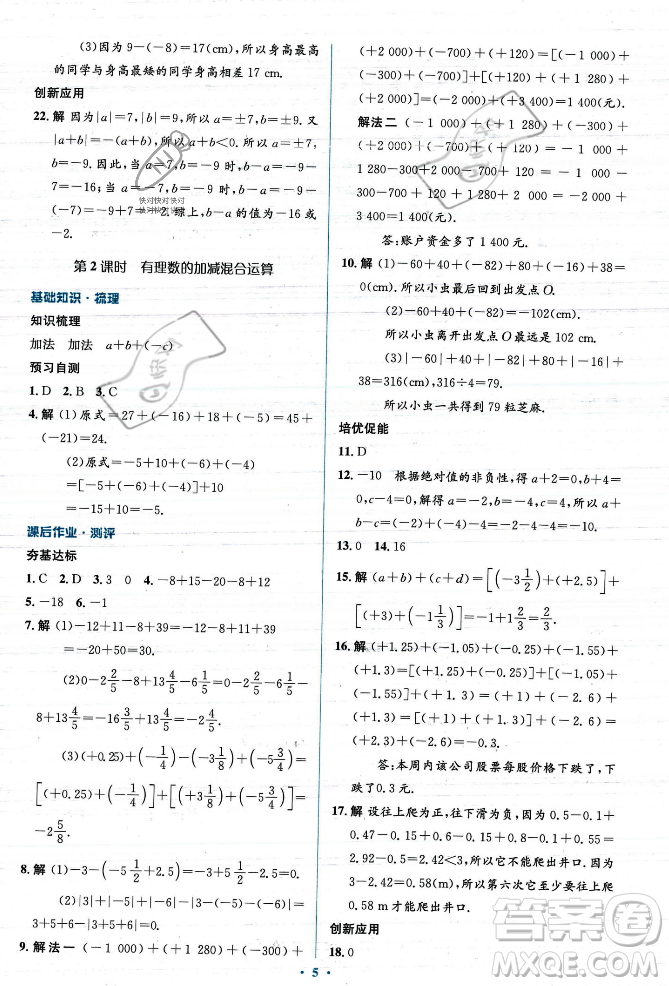 (3)因为 9-(-8)=17(cm),所以身高最高
的同学与身高最矮的同学身高相差 17 cm.
创新应用
22.解 因为|a|=7,|b|=9,所以a=±7,b=±9.又
|a+b|=-(a+b),所以a+b<0.所以a=±7,
b=-9.因此,当a=-7,b=-9时,b-a=-9-
7=-16;当a=-7,b=-9时,b-a=-9-(-
7)=-9+7=-2.综上,b-a的值为-16或
-2.
第2课时 有理数的加减混合运算
基础知识·梳理
知识梳理
加法 加法 a+b+(-c)
预习自测
1.D 2.B 3.C
4.解 (1)原式=27+(-16)+18+(-5)+
(-21)=24.
(2)原式=-5+10+(-6)+(-4)
=[-5+(-6)+(-4)]+10
=-15+10=-5.
课后作业·测评
夯基达标
1.C 2.D 3.3 0 4.-8+15-20-8+12
5.-18 6.-1
7.解 (1)-12+11-8+39=-12-8+11+39
=-20+50=30.
(2)0-2 2/5-8+13 4/5-4/5=-2 2/5-4/5-
8+13 4/5=-16/5+13 4/5-8=13/5.
(3)(+0.25)+(-1/4)-(-3 1/8)-(+5 3/4)=
[(+0.25)+(-1/4)]+[(+3 1/8)+(-5 3/4)]=
-2 5/8.
8.解 (1)-3-(-5 1/2+2.5)=-3-(-3)=0.
(2)|3+1|-(-3)-|3-5|=|4|+3-|-2|=4+3-2=5.
9.解法一 (-1 000)+(+1 280)+(-300)+
(+2 000)+(-700)+(+120)=[(-1 000)+
(-300)+(-700)]+[(+1 280)+(+120)]+
(+2 000)=(-2 000)+(+1 400)+
(+2 000)=+1 400(元).
解法二 (-1 000)+(+1 280)+(-300)+
(+2 000)+(-700)+(+120)=-1 000+
1 280-300+2 000-700+120=-2 000+
3 400=1 400(元).
答:账户资金多了 1 400 元.
10.解
0(cm).
所以小虫最后回到出发点 O.
(2)-60+40-82=-102(cm).
所以小虫离开出发点O最远是 102 cm.
38=316(cm),316÷4=79.
所以小虫一共得到 79 粒芝麻.
培优促能
11.D
12.-10 根据绝对值的非负性,得a+2=0,b+4=
0,c-4=0,解得a=-2,b=-4,c=4,所以a+
b-c=-2-4-4=-10.
13.0 14.16
15.解 (a+b)+(c+d)=[(-3 1/2)+(+2 1/2)]+
[(+3)+(-1 2/3)]=-1+1 1/3=1/3.
16.解 (+1.25)+(-1.05)+(-0.25)+(-1.55)+
(+1.3)=(+1.25)+(-0.25)+[(-1.05)+
(-1.55)]+(+1.3)=(+1)+(-2.6)+
(+1.3)=[(+1)+(+1.3)]+(-2.6)=
(+2.3)+(-2.6)=-0.3.
答:本周内该公司股票每股价格下跌了,下
跌了0.3元.
17.解 设往上爬为正,往下滑为负,则 0.5-0.1+
0.58 m才能爬出井口.
创新应用
18.0
5
答案圈
MXQE.COM